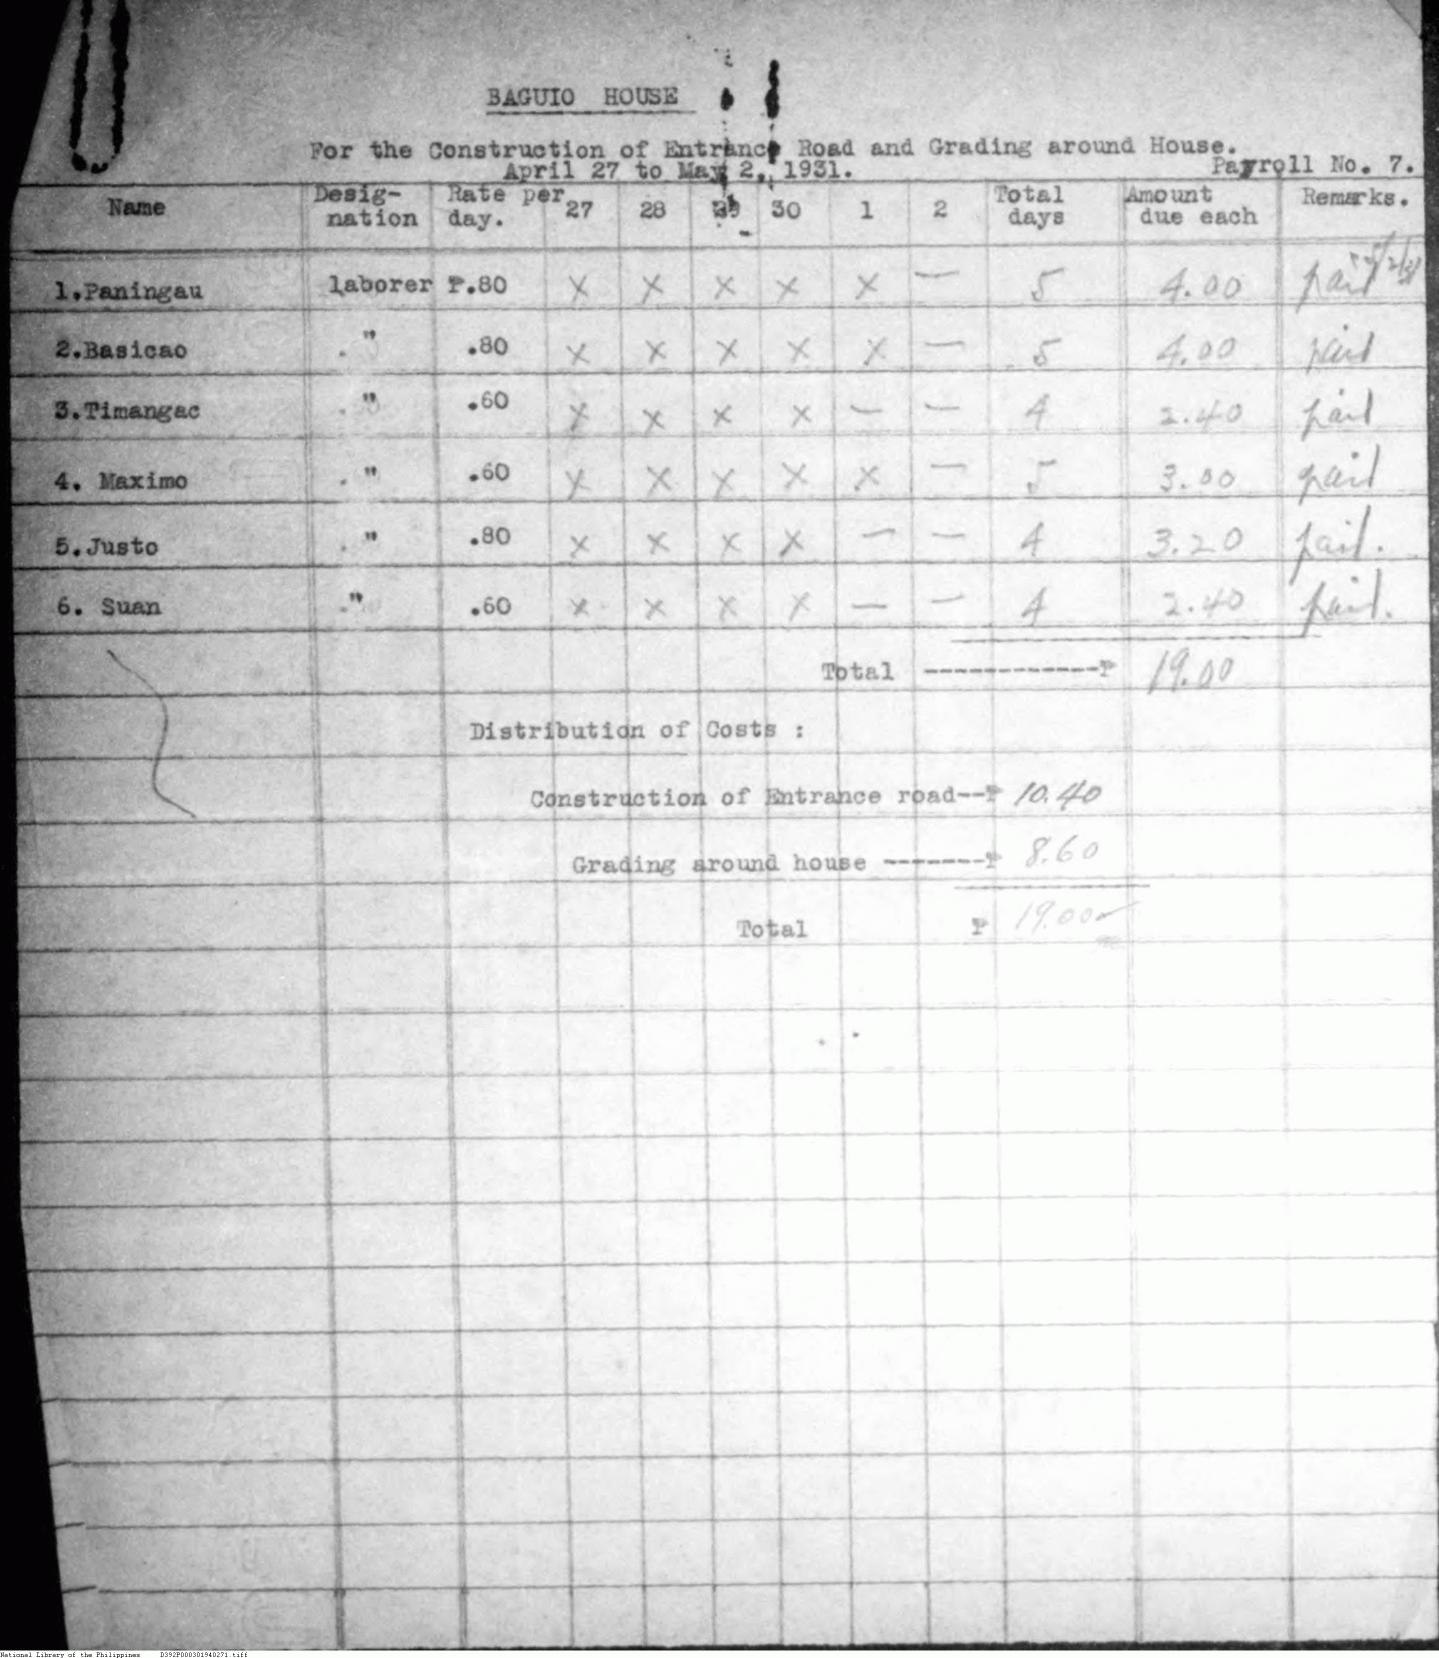 BAGUIO HOUSE
For the Construction of Entrance Road and Grading around House.
April 27 to May 2, 1931. Payroll No. 7.
Name Desig-nation Rate per day. 27 28 29 30 1 2 Total days Amount due each Remarks.
1.Paningau laborer ₱.80 x x x x x — 5 4.00 paid 5/2/31
2.Basicao " .80 x x x x x — 5 4.00 paid
3.Timangac " .60 x x x x — — 4 2.40 paid
4. Maximo " .60 x x x x x — 5 3.00 paid
5.Justo " .80 x x x x — — 4 3.20 paid.
6. Suan " .60 x x x x — — 4 2.40 paid.
Total ------------₱ 19.00
Distribution of Costs :
Construction of Entrance road--₱ 10.40
Grading around house -------₱ 8.60
Total ₱ 19.00
National Library of the Philippines D392P000301940271.tiff